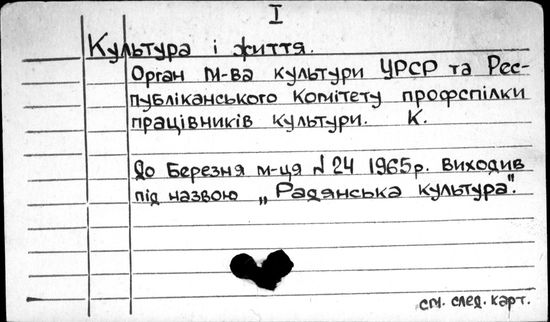 I
Культура і життя.
Орган м-ва культури УРСР та Рес-
публіканського Комітету профспілки
працівників культури. К.
До Березня м-ця №24 1965р. виходив
під назвою „Радянська культура".
см. след. карт.